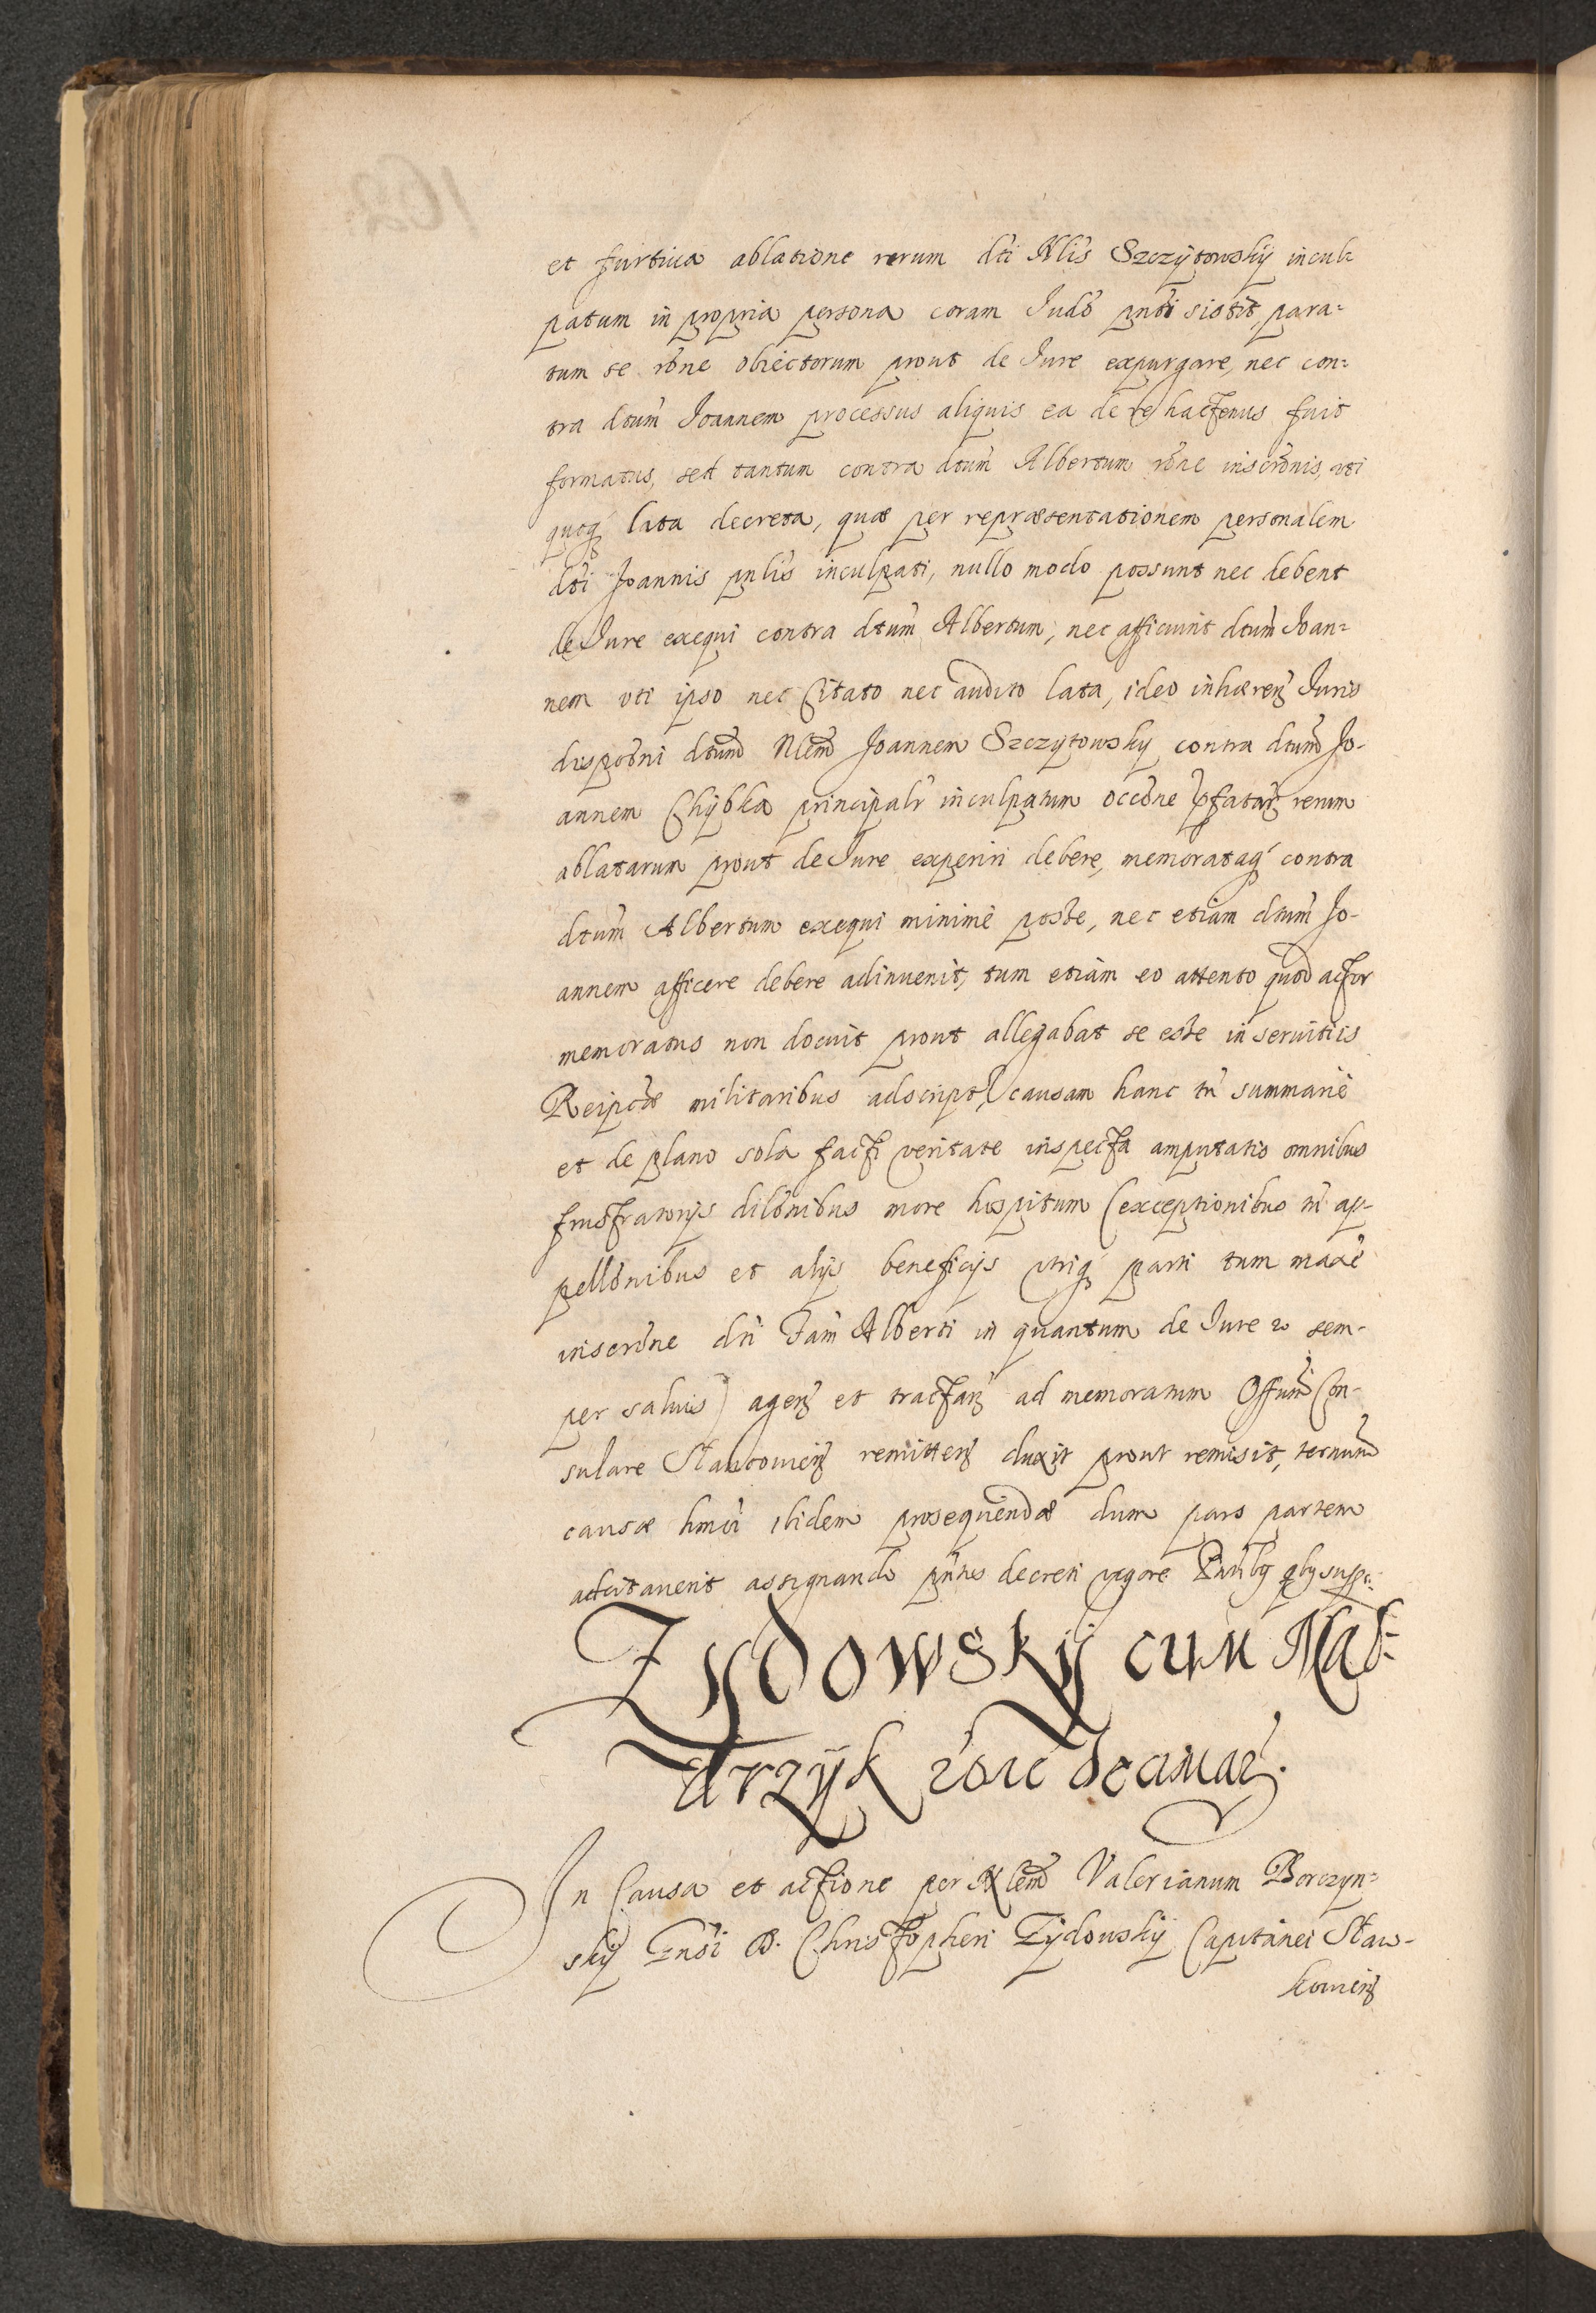 et furtiua ablatione rerum dti Nlis Szczÿtowskÿ incul-
patum in propria persona coram Judō pnti sistit, para=
tum se rōne obiectorum prout de Jure expurgare, nec con=
tra dtum Joannem processus aliquis ea de re hactenus fuit
formatus, sed tantum contra dtum Albertum rōne inscrōnis, uti
quoq lata decreta, quæ per repræsentationem personalem
dti Joannis pnlis inculpati, nullo modo possunt nec debent
de Jure exequi contra dtum Albertum, nec afficiunt dtum Joan=
nem uti ipso nec Citato nec audito lata, ideo inhæren Juris
dispoōni dtum Nlem Joannem Szczytowsky contra dtum Jo-
annem Chÿbka principalr inculpatum occōne pfatar rerum
ablatarum prout de Jure experiri debere, memorataq contra
dtum Albertum exequi minime posse, nec etiam dtum Jo-
annem afficere debere adinuenit, tum etiam eo attento quod actor
memoratus non docuit prout allegabat se esse in seruitiis
Reipcæ militaribus adscript, causam hanc tn summarie
et de plano sola facti veritate inspecta amputatis omnibus
frustratorijs dilōnibus more hospitum (exceptionibus tn ap-
pellōnibus et alijs beneficijs utriq parti tum maxe
inscrōne dti Jam Alberti in quantum de Jure sem-
per saluis) agen et tractan ad memoratum Offum Con-
sulare Slawcouien remitten duxit prout remisit, ternum
causæ hmoi ibidem prosequendæ dum pars partem
adcitauerit assignando pntis decreti vigore
Zydowskij cum Mad-
drzÿk rōne
In Causa et actione per Nlem Valerianum Borczyn=
skÿ Gnsi D. Christopheri Zÿdowskÿ Capitanei Slaw-
kouien